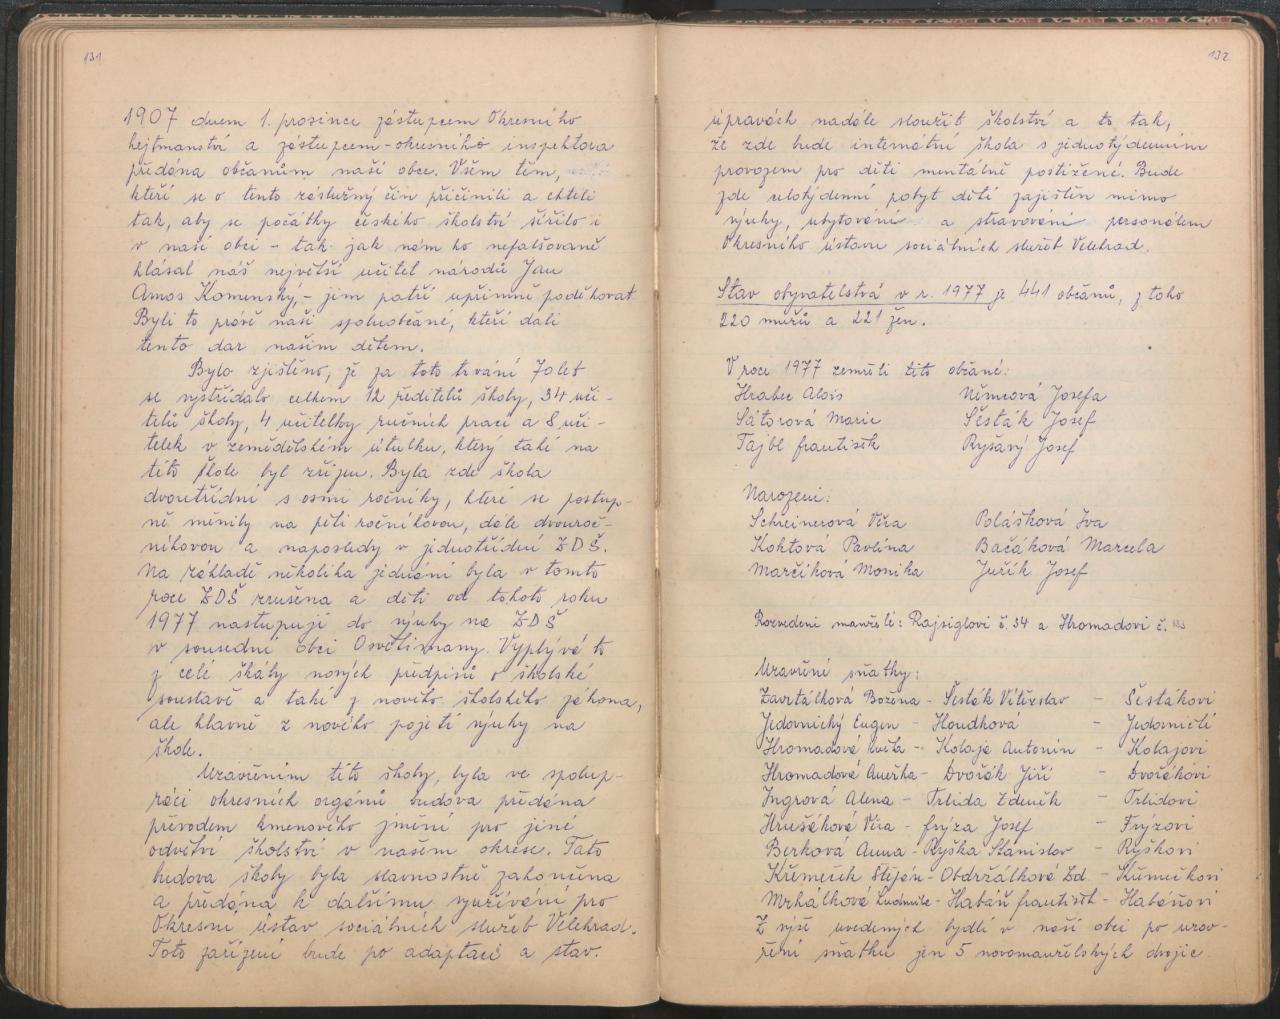 131
1907 dnem 1. prosince zástupcem Okresního
hejtmanství a zástupcem-okresního inspektora
předána občanům naší obce. Všem těm,
kteří se o tento záslužný čin přičinili a chtěli
tak, aby se počátky českého školství šířilo i
v naší obci - tak jak nám ho nefalšovaně
hlásal náš největší učitel národů Jan
Amos Komenský, - jim patří upřímně poděkovat
Byli to právě naši spoluobčané, kteří dali
tento dar našim dětem.
Bylo zjištěno, že za toto trvání 70 let
se vystřídalo celkem 12 ředitelů školy, 34 uči-
telů školy, 4 učitelky ručních prací a 8 uči-
telek v zemědělském útulku, který také na
této škole byl zřízen. Byla zde škola
dvoutřídní s osmi ročníky, které se postup-
ně měnily na pěti ročníkovou, dále dvouroč-
níkovou a naposledy v jednotřídní ZDŠ.
Na základě několika jednání byla v tomto
roce ZDŠ zrušena a děti od tohoto roku
1977 nastupují do výuky na ZDŠ
v sousední obci Osvětimany. Vyplývá to
z celé škály nových předpisů o školské
soustavě a také z nového školského zákona,
ale hlavně z nového pojetí výuky na
škole.
Uzavřením této školy, byla ve spolup-
ráci okresních orgánů budova předána
převodem kmenového jmění pro jiné
odvětví školství v našem okrese. Tato
budova školy byla slavnostně zakončena
a předána k dalšímu využívání pro
Okresní ústav sociálních služeb Velehrad.
Toto zařízení bude po adaptaci a stav.
132
úpravách nadále sloužit školství a to tak,
že zde bude internátní škola s jednotýdenním
provozem pro děti mentálně postižené. Bude
zde celotýdenní pobyt dětí zajištěn mimo
výuky, ubytování a stravování personálem
Okresního ústavu sociálních služeb Velehrad.
Stav obyvatelstva v r. 1977 je 441 občanů, z toho
220 mužů a 221 žen.
V roce 1977 zemřeli tito občané:
Hrabec Alois Němcová Josefa
Sátorová Marie Šesták Josef
Tajbl František Ryšavý Josef
Narození:
Schreinerová Věra Polášková Iva
Kohtová Pavlína Bačáková Marcela
Marčíková Monika Juřík Josef
Rozvedeni manželé: Rajsiglovi č. 34 a Hromadovi č.
Uzavření sňatky:
Zavrtálková Božena - Šesták Vítězslav - Šestákovi
Jedovnický Eugen - Houdková - Jedovničtí
Hromadová Květa - Kolaja Antonín - Kolajovi
Hromadová Anežka - Dvořák Jiří - Dvořákovi
Ingrová Alena - Trlida Zdeněk - Trlidovi
Hrušáková Věra - Frýza Josef - Frýzovi
Berková Anna - Ryška Stanislav - Ryškovi
Křemeček Štěpán - Obdržálková Zd. - Křemečkovi
Mrhálková Ludmila - Habáň František - Habáňovi
Z výše uvedených bydlí v naší obci po uzav-
ření sňatku jen 5 novomanželských dvojic.